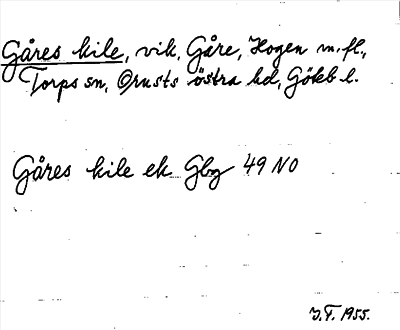 Gåres kile, vik, Gåre, Hogen m.fl.,
Torps sn, Orusts östra hd, Göteb l.
Gåres kile ek Gbg 49 NO
J.F. 1955.